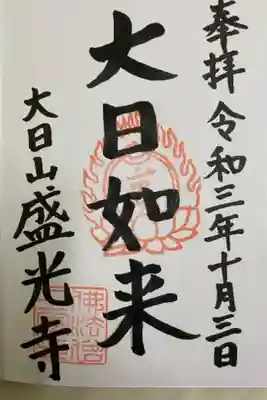 奉拝 令和三年十月三日
大日如来
大日山盛光寺
佛法僧寶